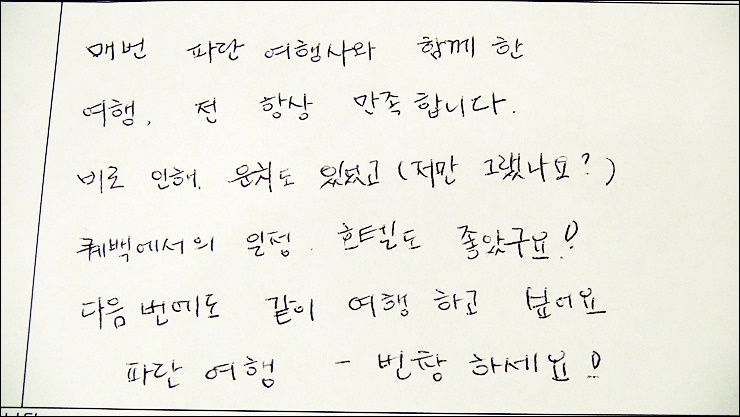 매번 파란 여행사와 함께 한
여행, 전 항상 만족합니다.
비로 인해, 운치도 있었고 (저만 그랬나요?)
퀘백에서의 일정, 호텔도 좋았구요!
다음번에도 같이 여행 하고 싶어요
파란 여행 - 번창 하세요!